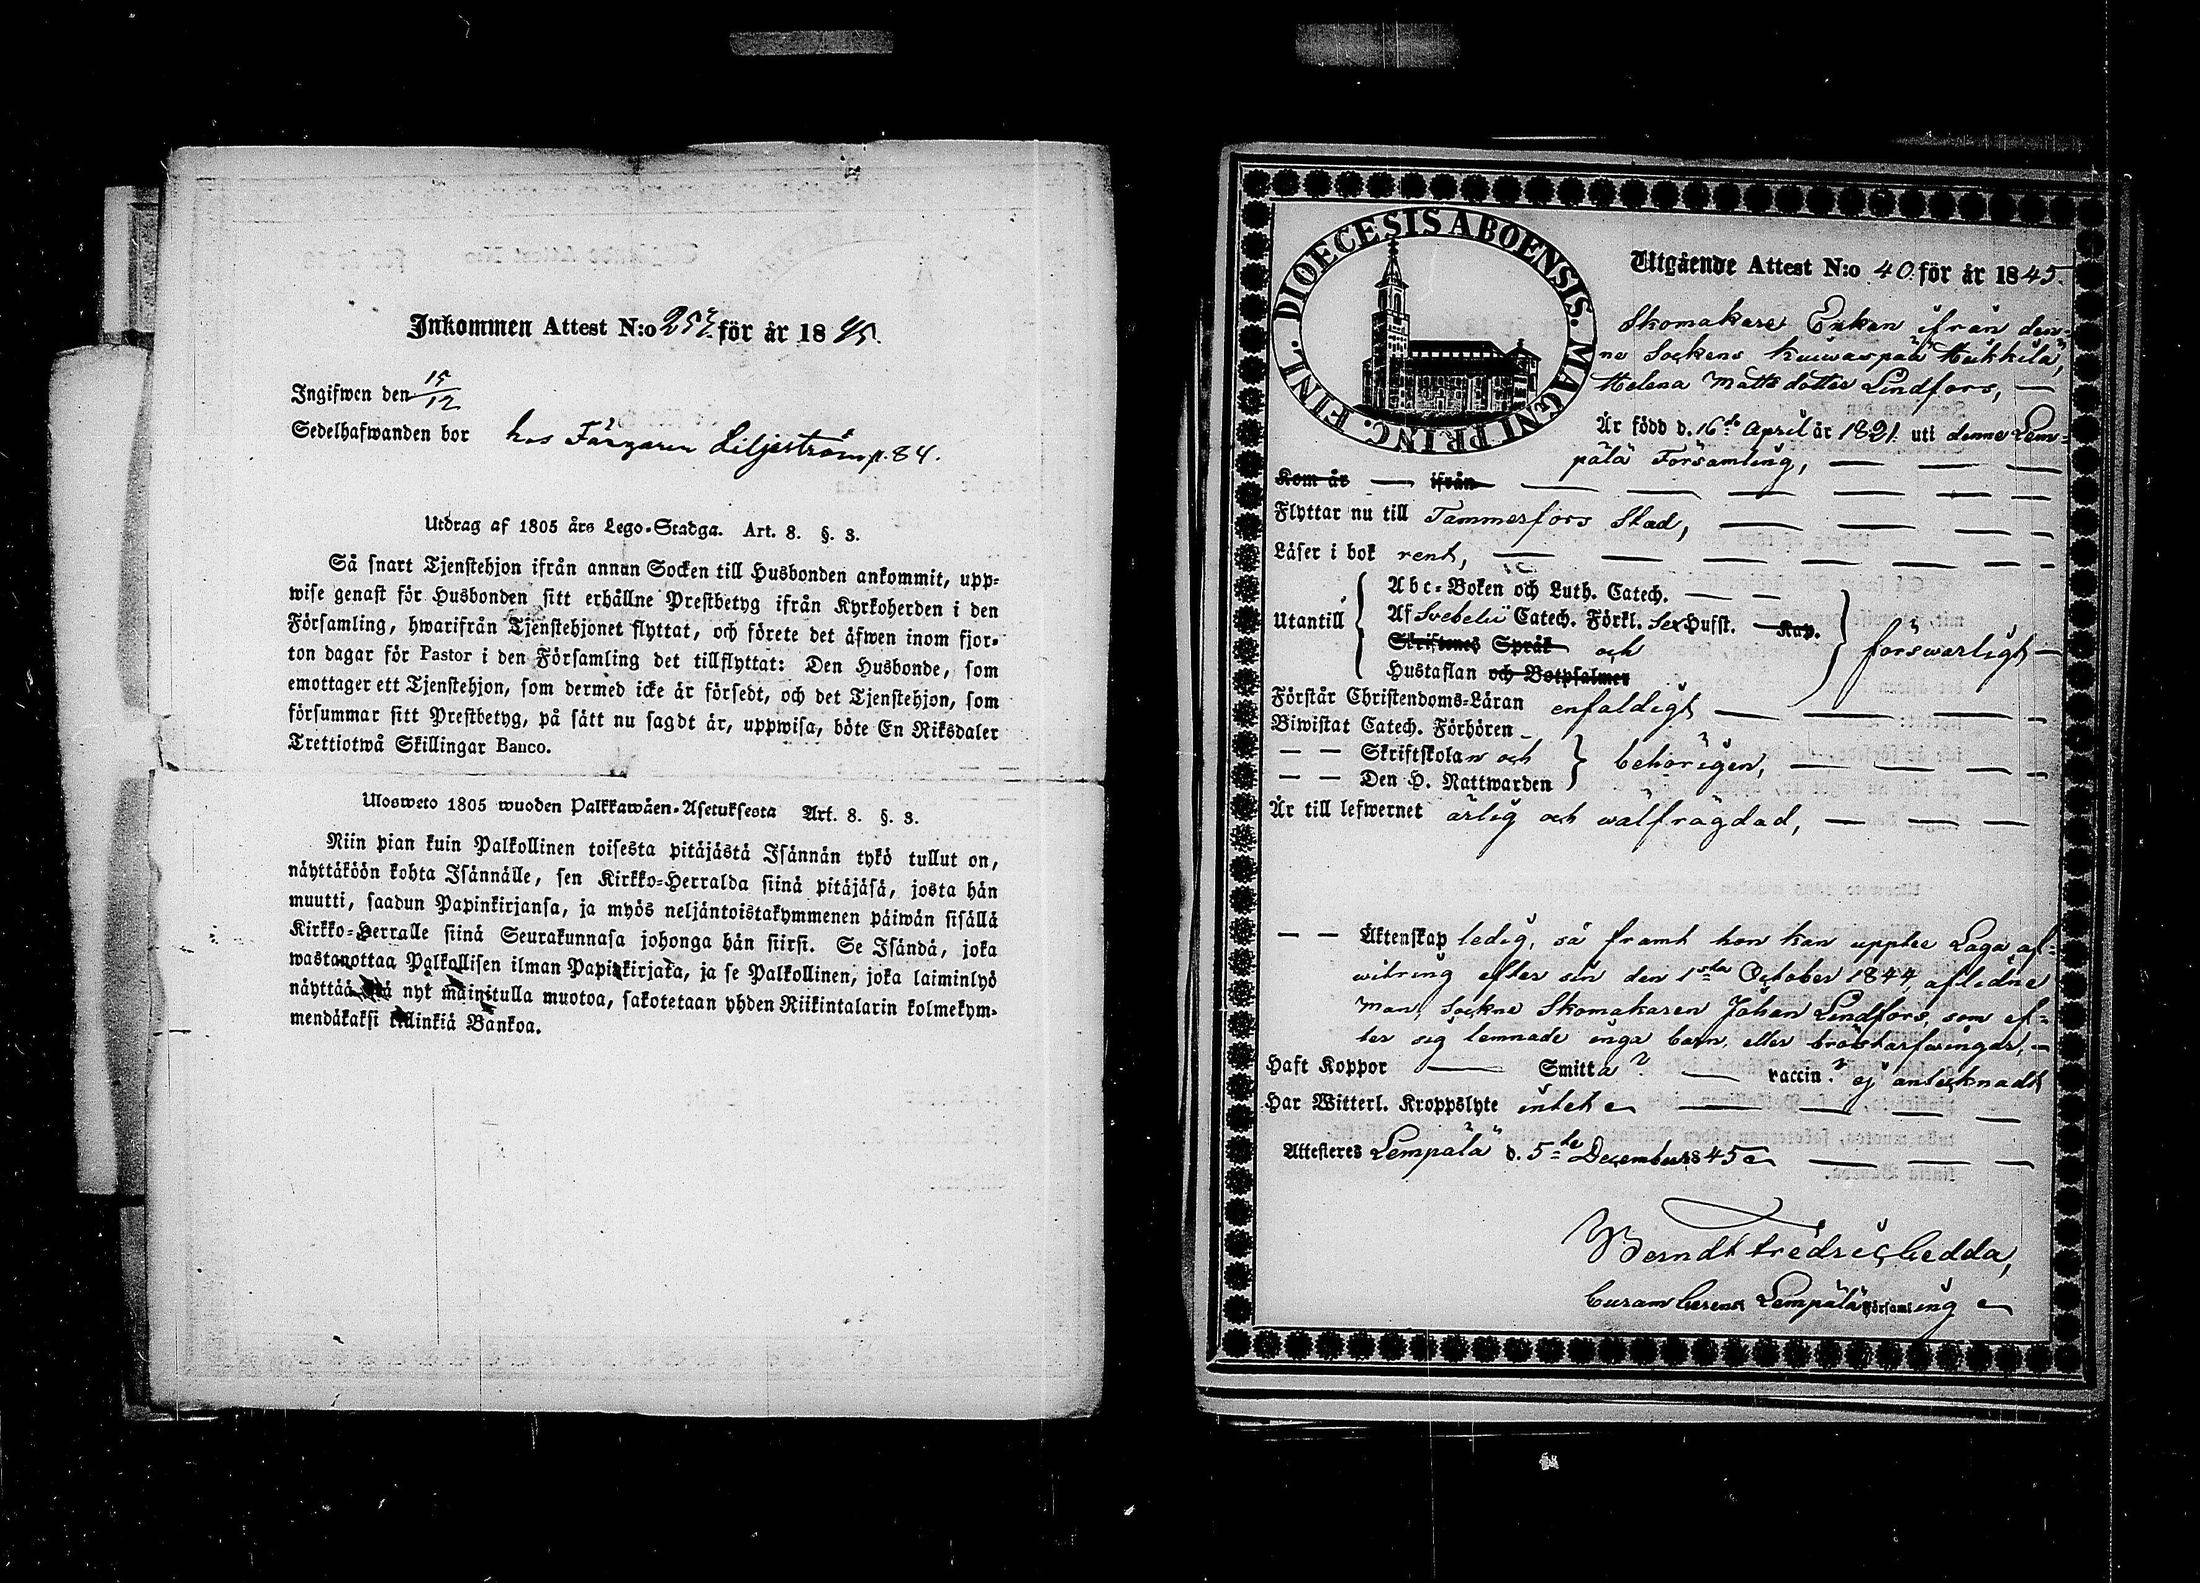 Inkommen Attest N:o 257. för år 1845.
Ingifwen den 15/12
Sedelhafwanden bor hos Färgaren Liljeström p. 84.
Utdrag af 1805 års Lego-Stadga. Art. 8. §. 3.
Så snart Tjenstehjon ifrån annan Socken till Husbonden ankommit, upp-
wise genast för Husbonden sitt erhållne Prestbetyg ifrån Kyrkoherden i den
Församling, hwarifrån Tjenstehjonet flyttat, och förete det äfwen inom fjor-
ton dagar för Pastor i den Församling det tillflyttat: Den Husbonde, som
emottager ett Tjenstehjon, som dermed icke är försedt, och det Tjenstehjon, som
försummar sitt Prestbetyg, på sätt nu sagdt är, uppwisa, böte En Riksdaler
Trettiotwå Skillingar Banco.
Ulosweto 1805 wuoden Palkkawäen-Asetuksesta Art. 8. §. 3.
Niin pian kuin Palkollinen toisesta pitäjästä Isännän tykö tullut on,
näyttäköön kohta Isännälle, sen Kirkko-Herralda siinä pitäjäsä, josta hän
muutti, saadun Papinkirjansa, ja myös neljäntoistakymmenen päiwän sisällä
Kirkko-Herralle siinä Seurakunnasa johonga hän siirsi. Se Isändä, joka
wastanottaa Palkollisen ilman Papinkirjata, ja se Palkollinen, joka laiminlyö
näyttää sitä nyt mainitulla muotoa, sakotetaan yhden Riikintalarin kolmekym-
mendäkaksi killinkiä Bankoa.
DIOECESIS ABOENSIS. MAGNI PRINC. FINL.
Utgående Attest N:o 40. för år 1845.
Skomakare Enkan ifrån den-
ne Sockens Kuiwaspää Heikkilä,
Helena Matts dotter Lindfors,
Är född d. 16de April år 1821. uti denne Lem-
pälä Församling,
Kom år ifrån
Flyttar nu till Tammerfors Stad,
Läser i bok rent,
Utantill
Abc-Boken och Luth. Catech.
Af Svebelii Catech. Förkl. Sex Hufst. Kap.
Skriftenes Språk och
Hustaflan och Botpsalmer
förswarligt
Förstår Christendoms-Läran enfaldigt
Biwistat Catech. Förhören
Skriftskolan och
Den H. Nattwarden
behörigen,
Är till lefwernet ärlig och wälfrägdad,
Äktenskap ledig, så framt hon kan upplee Laga af-
witring efter sin den 1sta October 1844, aflidne
man, Sockne Skomakaren Johan Lindfors, som ef-
ter sig lemnade inga barn eller bröstarfwingar,
Haft Koppor Smitta? vaccin.? ej antecknadt
Har Witterl. Kroppslyte intet
Attesteres Lempälä d. 5te December 1845
Berndt Fredric Cedda,
Curam Gerens Lempälä Församling